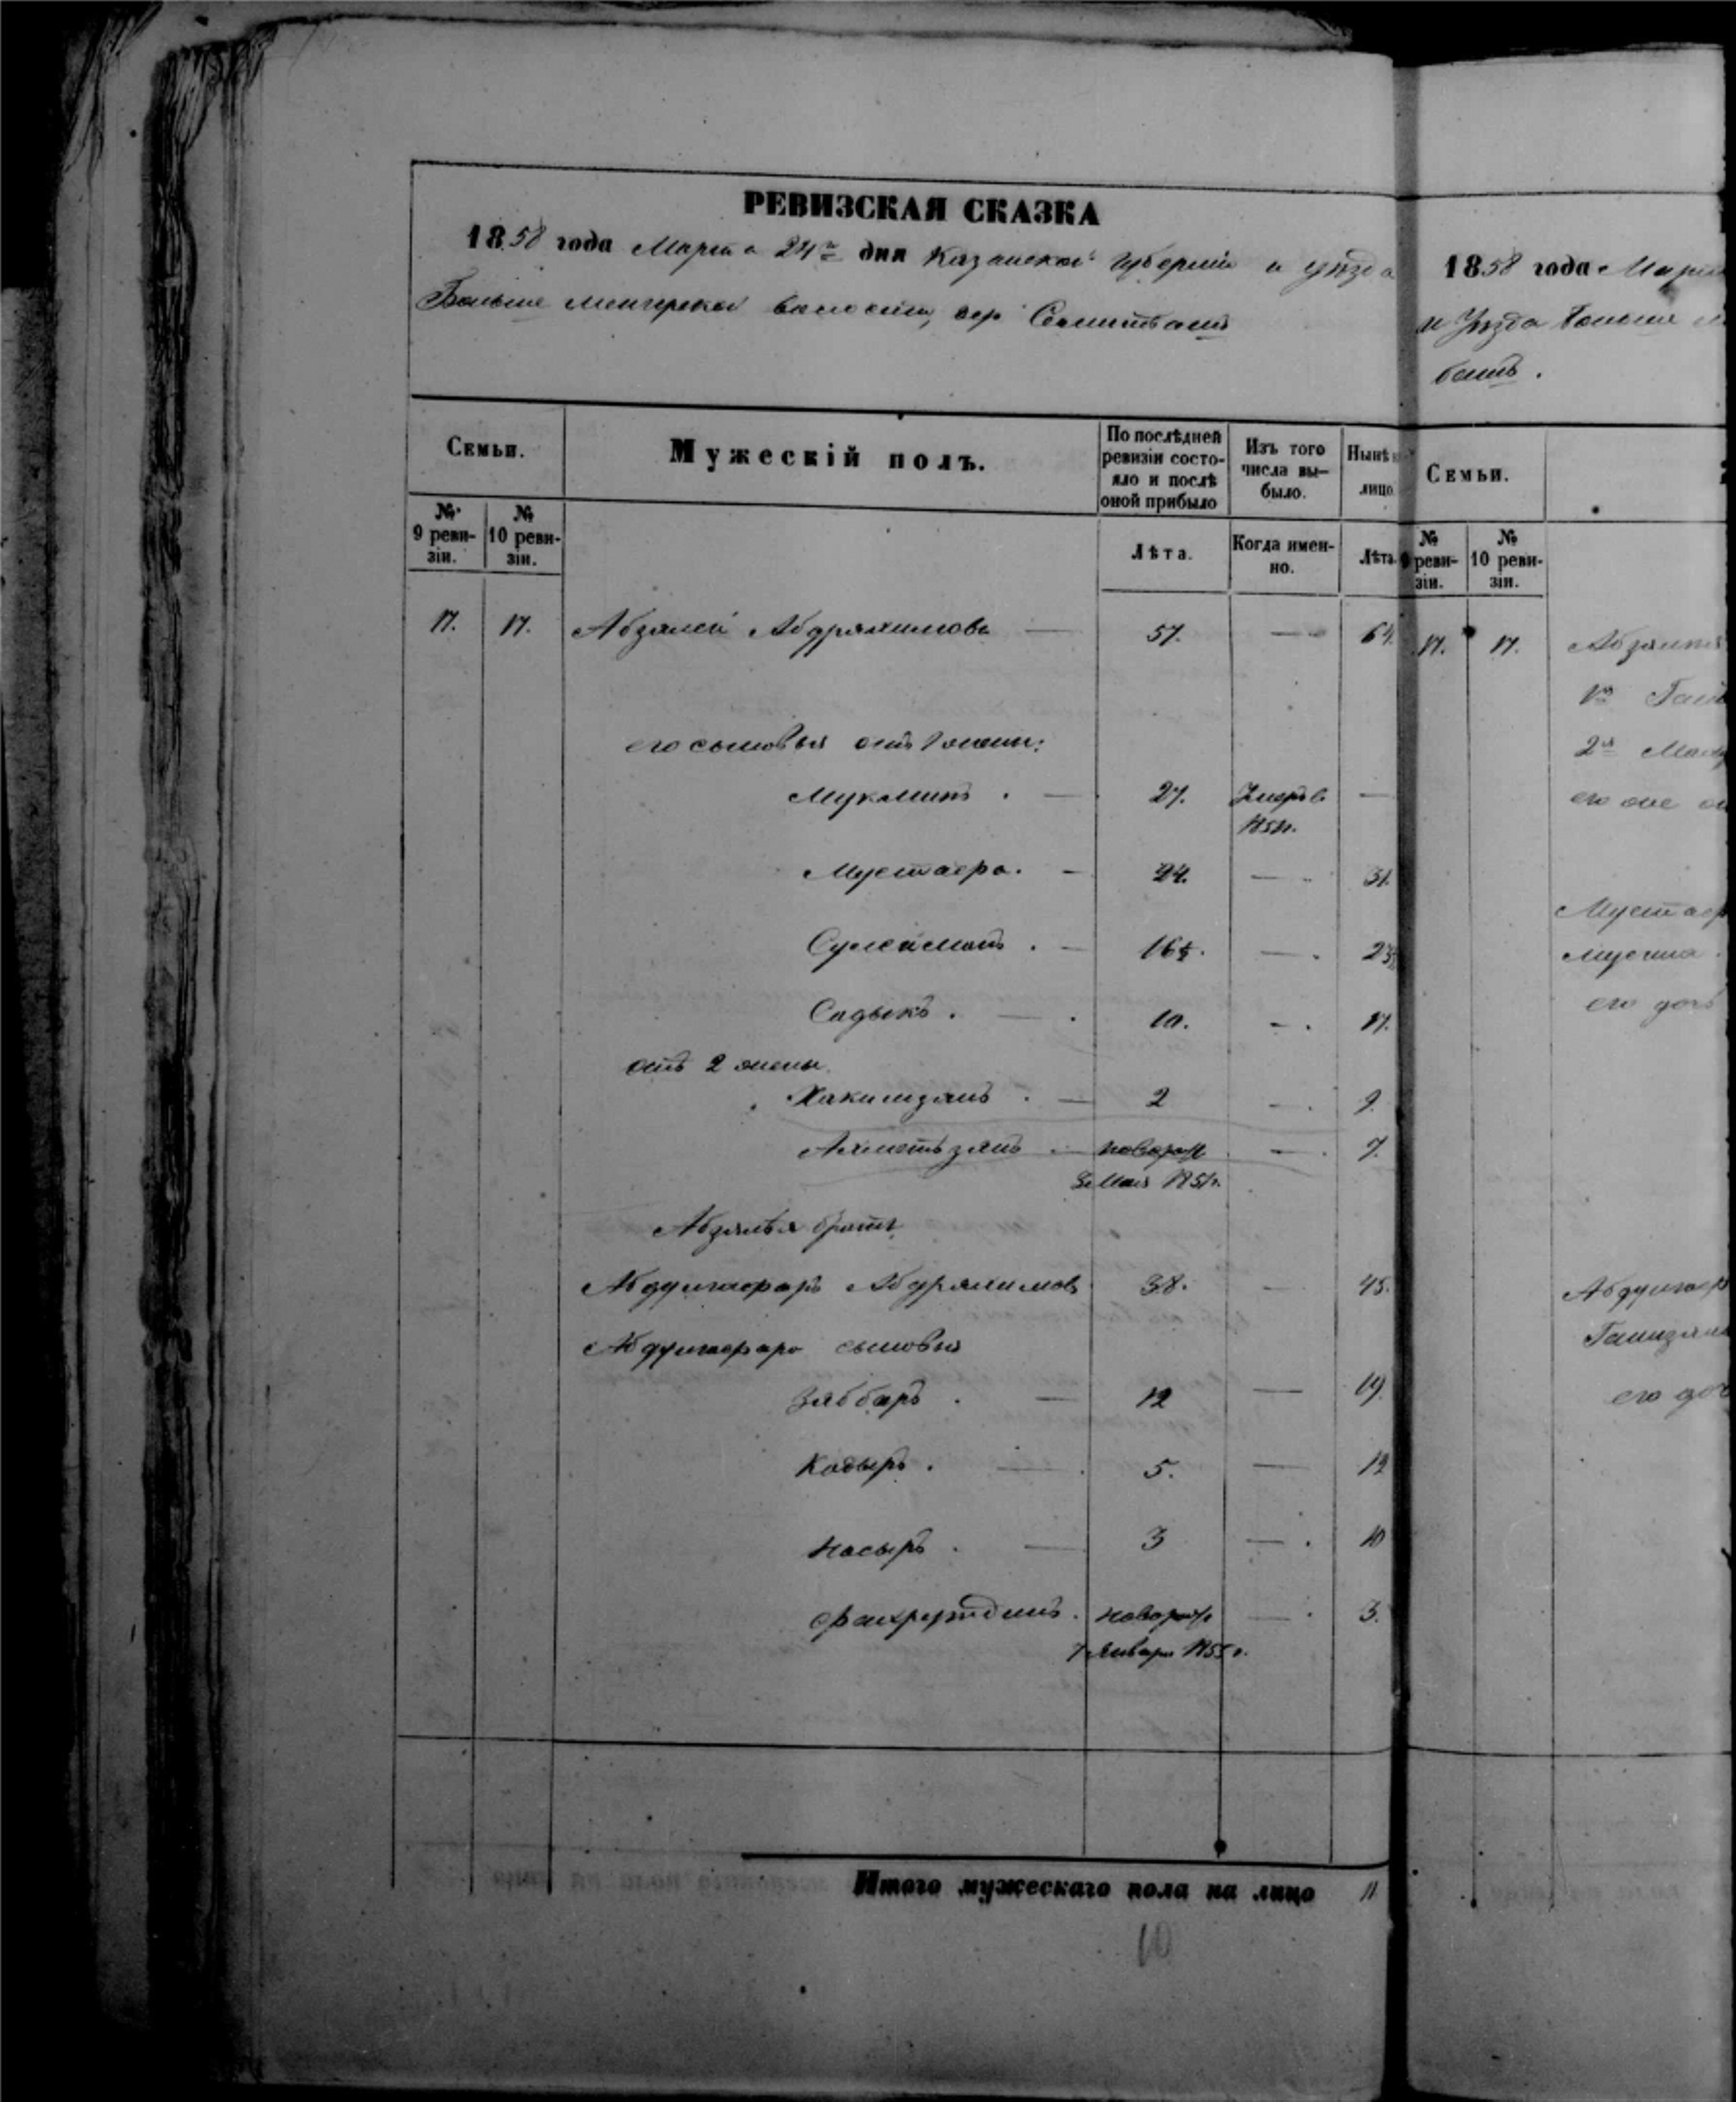 РЕВИЗСКАЯ СКАЗКА
1858 года Марта 24го дня Казанской Губерніи и уѣзда
Больше Менгерской волости, дер
Семьи.
Мужескій полъ.
По послѣдней ревизіи состояло и послѣ оной прибыло
Изъ того числа выбыло.
Нынѣ на лицо.
№ 9 ревизіи.
№ 10 ревизіи.
Лѣта.
Когда именно.
Лѣта.
17. 17. Абзялей Абдряхимовъ — 57. — 64.
его сыновья отъ 1 жены:
Мукминъ . — 27. Умеръ в —
Мустаера. — 24. — 31.
Сулейманъ . — 16½. — 23½
Садыкъ . — 10. — 17.
отъ 2 жены
Хакимзянъ . — 2 — 9.
Ахметьзянъ . — новорож — 7.
Мая 1851г.
Абзялья братъ
Абдулгафаръ Абдряхимовъ 38. — 45.
Абдулгафара сыновья
Зяббаръ . — 12 — 19.
Кадыръ . — 5. — 12
Насыръ . — 3 — 10
Фахрутдинъ . новорож — 3.
7 Января 1855 г.
Итого мужескаго пола на лицо 11
10
1858 года Март
и Уѣзда Больше
башъ.
Семьи.
№ 9 ревизіи.
№ 10 ревизіи.
17. 17. Абзялея
1я
2я
его же
Мустаер
его доч
Абдулгаф
его доч